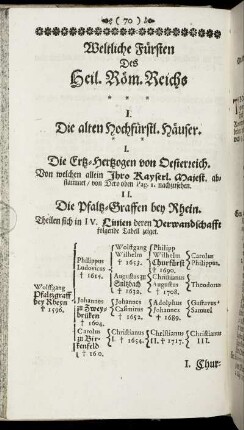 ( 70 )
Weltliche Fürsten
Des
Heil. Röm. Reichs
* * *
I.
Die alten Hochfürstl. Häuser.
I.
Die Ertz-Hertzogen von Oesterreich.
Von welchen allein Ihro Kayserl. Majest. ab-
stammet / von Dero oben Pag. 1. nachzusehen.
II.
Die Pfaltz-Graffen bey Rhein.
Theilen sich in IV. Linien deren Verwandschafft
folgende Tabel zeiget.
Wolffgang Pfaltzgraff bey Rhein † 1596.
Philippus Ludovicus † 1614.
Wolffgang Wilhelm † 1653.
Philipp Wilhelm Churfürst † 1690.
Carolus Philippus.
Augustus zu Sultzbach † 1632.
Christianus Augustus † 1708.
Theodorus
Johannes zu Zweybrücken † 1604.
Johannes Casimirus † 1652.
Adolphus Johannes † 1689.
Gustavus Samuel
Carolus zu Birkenfeld † 160.
Christianus I. † 1654.
Christianus II. † 1717.
Christianus III.
I. Chur-